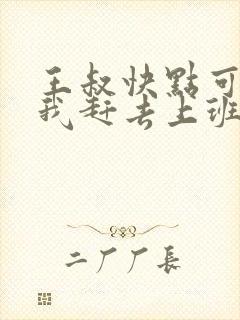 王叔快點可
我赶去上班
二厂厂長